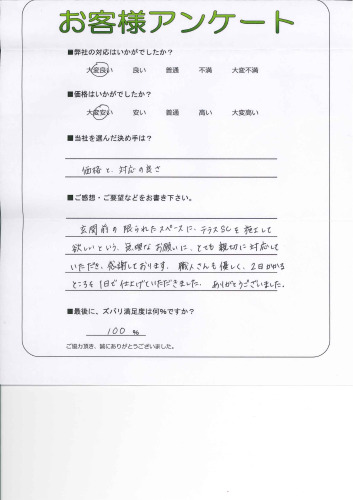 お客様アンケート
■弊社の対応はいかがでしたか？
大変良い 良い 普通 不満 大変不満
■価格はいかがでしたか？
大変安い 安い 普通 高い 大変高い
■当社を選んだ決め手は？
価格と、対応の良さ
■ご感想・ご要望などをお書き下さい。
玄関前の限られたスペースに、テラスSCを施工して
欲しいという、無理なお願いに、とても親切に対応して
いただき、感謝しております。職人さんも優しく、2日かかる
ところを1日で仕上げていただきました。ありがとうございました。
■最後に、ズバリ満足度は何%ですか？
100 %
ご協力頂き、誠にありがとうございました。